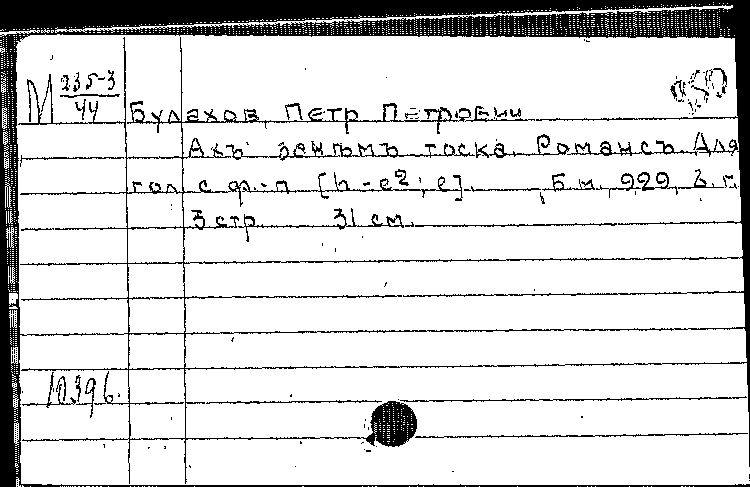 М 235-3
44
Булахов, Петр Петрович
Ахъ зачѣмъ тоска. Романсъ. Для
гол. с ф.-п. [h - e²; e]. , Б. м., 929, б. г.
3 стр. 31 см.
10396.